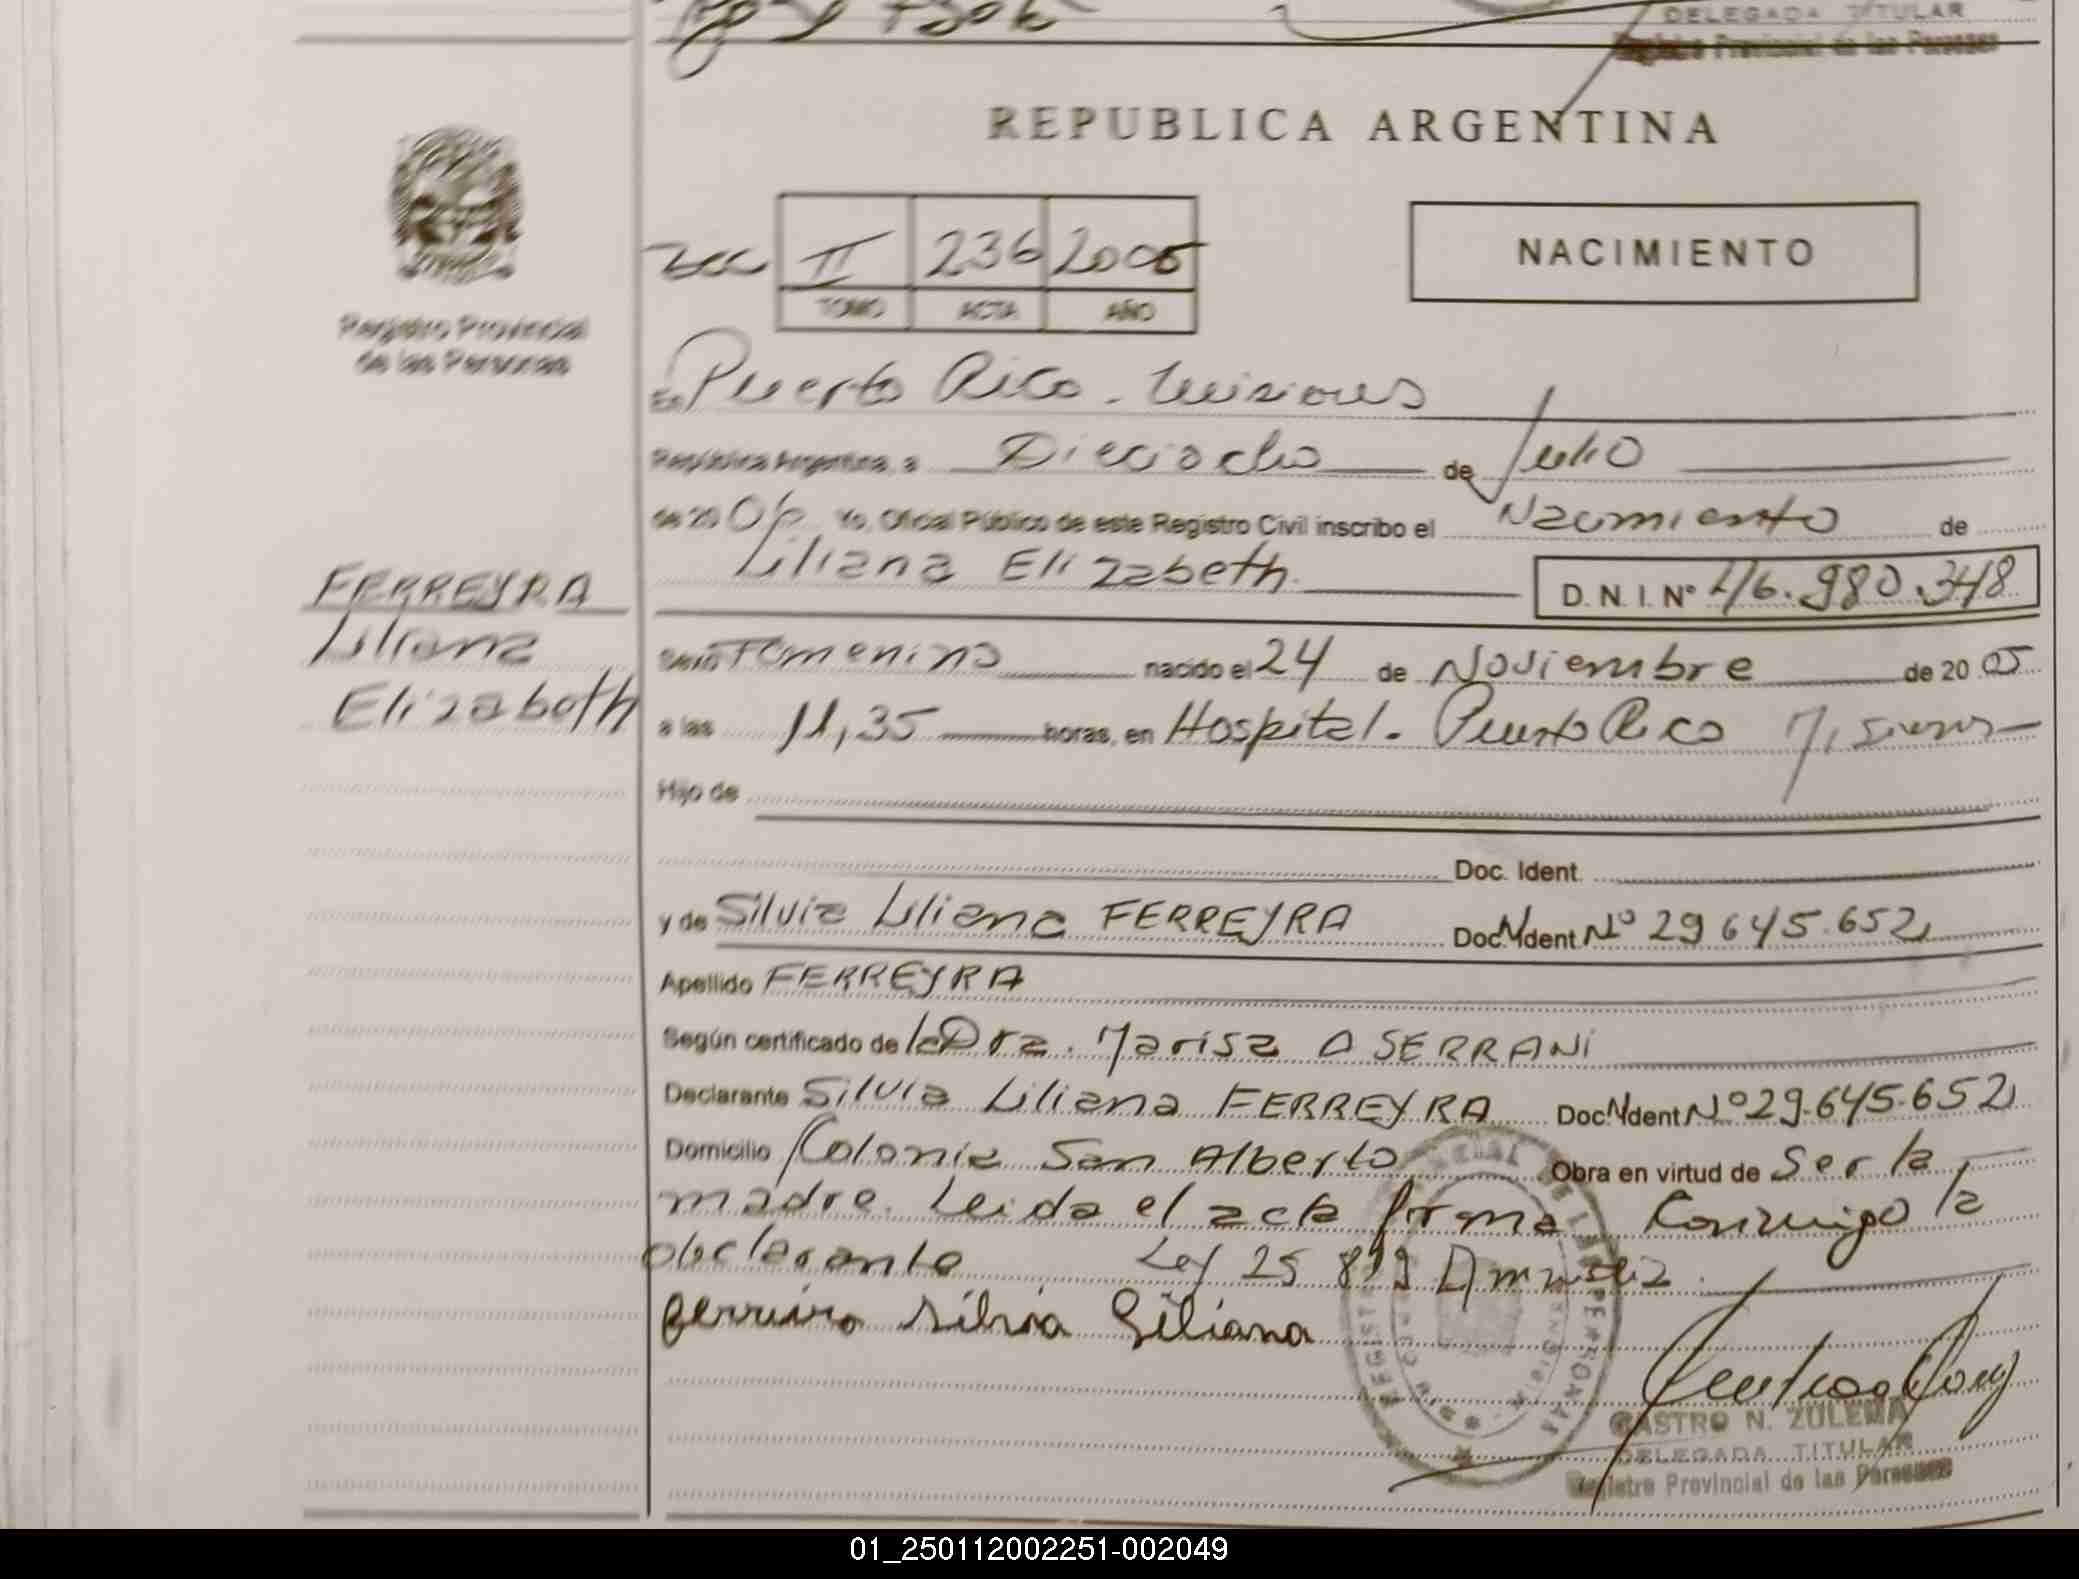 DELEGADA TITULAR
Registro Provincial de las Personas
REPUBLICA ARGENTINA
II 236 2005
TOMO ACTA AÑO
NACIMIENTO
Registro Provincial
de las Personas
En Puerto Rico. Misiones
República Argentina, a Dieciocho de Julio
de 20 06 Yo, Oficial Público de este Registro Civil inscribo el Nacimiento de
Liliana Elizabeth D.N.I. Nº 46.980.348
FERREYRA
Liliana
Elizabeth
Sexo Femenino nacido el 24 de Noviembre de 20 05
a las 11,35 horas, en Hospital. Puerto Rico Misiones
Hijo de
Doc. Ident.
y de Silvia Liliana FERREYRA Doc. Ident. Nº 29.645.652
Apellido FERREYRA
Según certificado de la Dra. Marisa A SERRANI
Declarante Silvia Liliana FERREYRA Doc. Ident. Nº 29.645.652
Domicilio Colonia San Alberto Obra en virtud de Ser la
madre. Leida el acta firma Conmigo la
declarante Ley 25 819 Amnistia.
Ferreira Silvia Liliana
CASTRO N. ZULEMA
DELEGADA TITULAR
Registro Provincial de las Personas
01_250112002251-002049